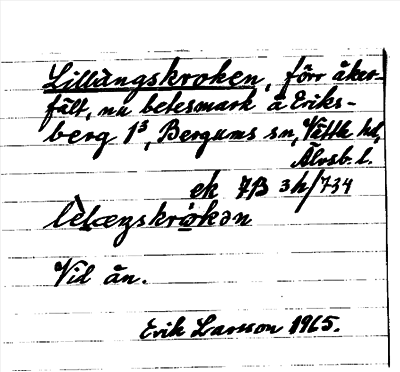 Lillängskroken, förr åker-
fält, nu betesmark å Eriks-
berg 1³, Bergums sn, Vättle hd,
Älvsb. l.
ek 7B 3h/734
lèlæŋskrò̤kən
Vid ån.
Erik Larsson 1965.